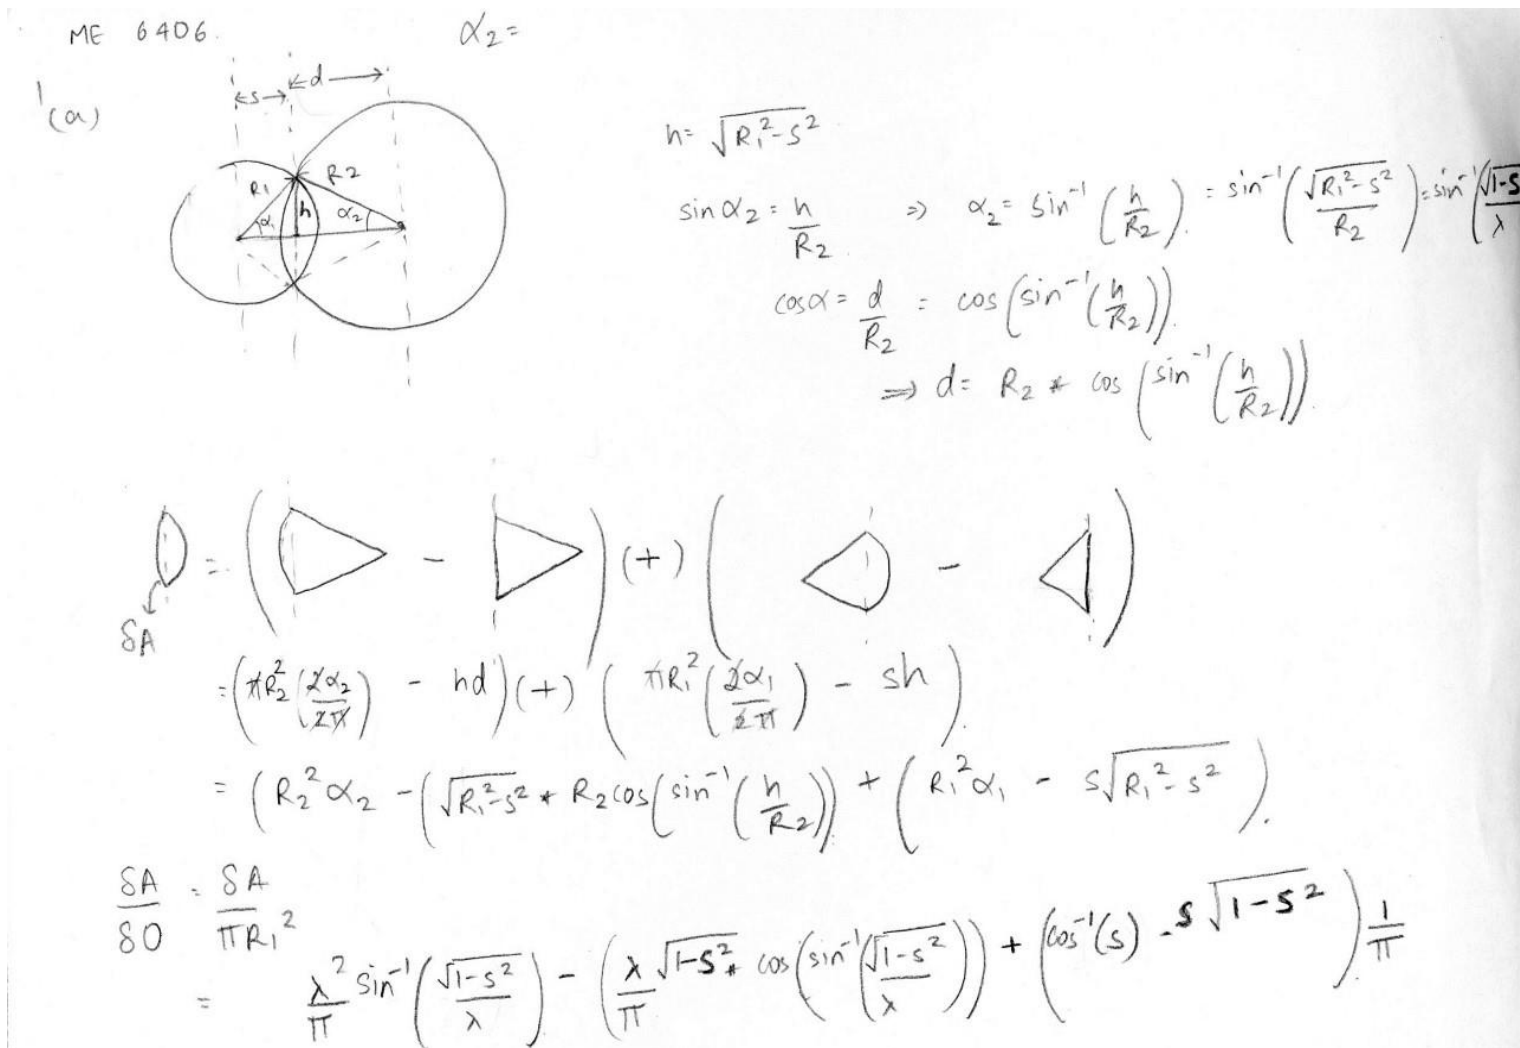 ME 6406.
α₂ =
1
(a)
←s→ ←d→
R1 R2
α₁ h α₂
h = √(R₁² - s²)
sin α₂ = h/R₂ ⇒ α₂ = sin⁻¹(h/R₂) = sin⁻¹(√(R₁² - s²)/R₂) = sin⁻¹(√1-S/λ
cos α = d/R₂ = cos(sin⁻¹(h/R₂))
⇒ d = R₂ * cos(sin⁻¹(h/R₂))
= ( - ) (+) ( - )
δA
= (πR₂² (2α₂/2π) - hd) (+) (πR₁² (2α₁/2π) - sh)
= (R₂² α₂ - (√(R₁² - s²) * R₂ cos(sin⁻¹(h/R₂))) + (R₁² α₁ - s√(R₁² - s²)).
δA/δO = δA/πR₁²
= λ²/π sin⁻¹(√(1-s²)/λ) - (λ/π √(1-s²) * cos(sin⁻¹(√(1-s²)/λ))) + (cos⁻¹(s) - s√(1-s²)) 1/π